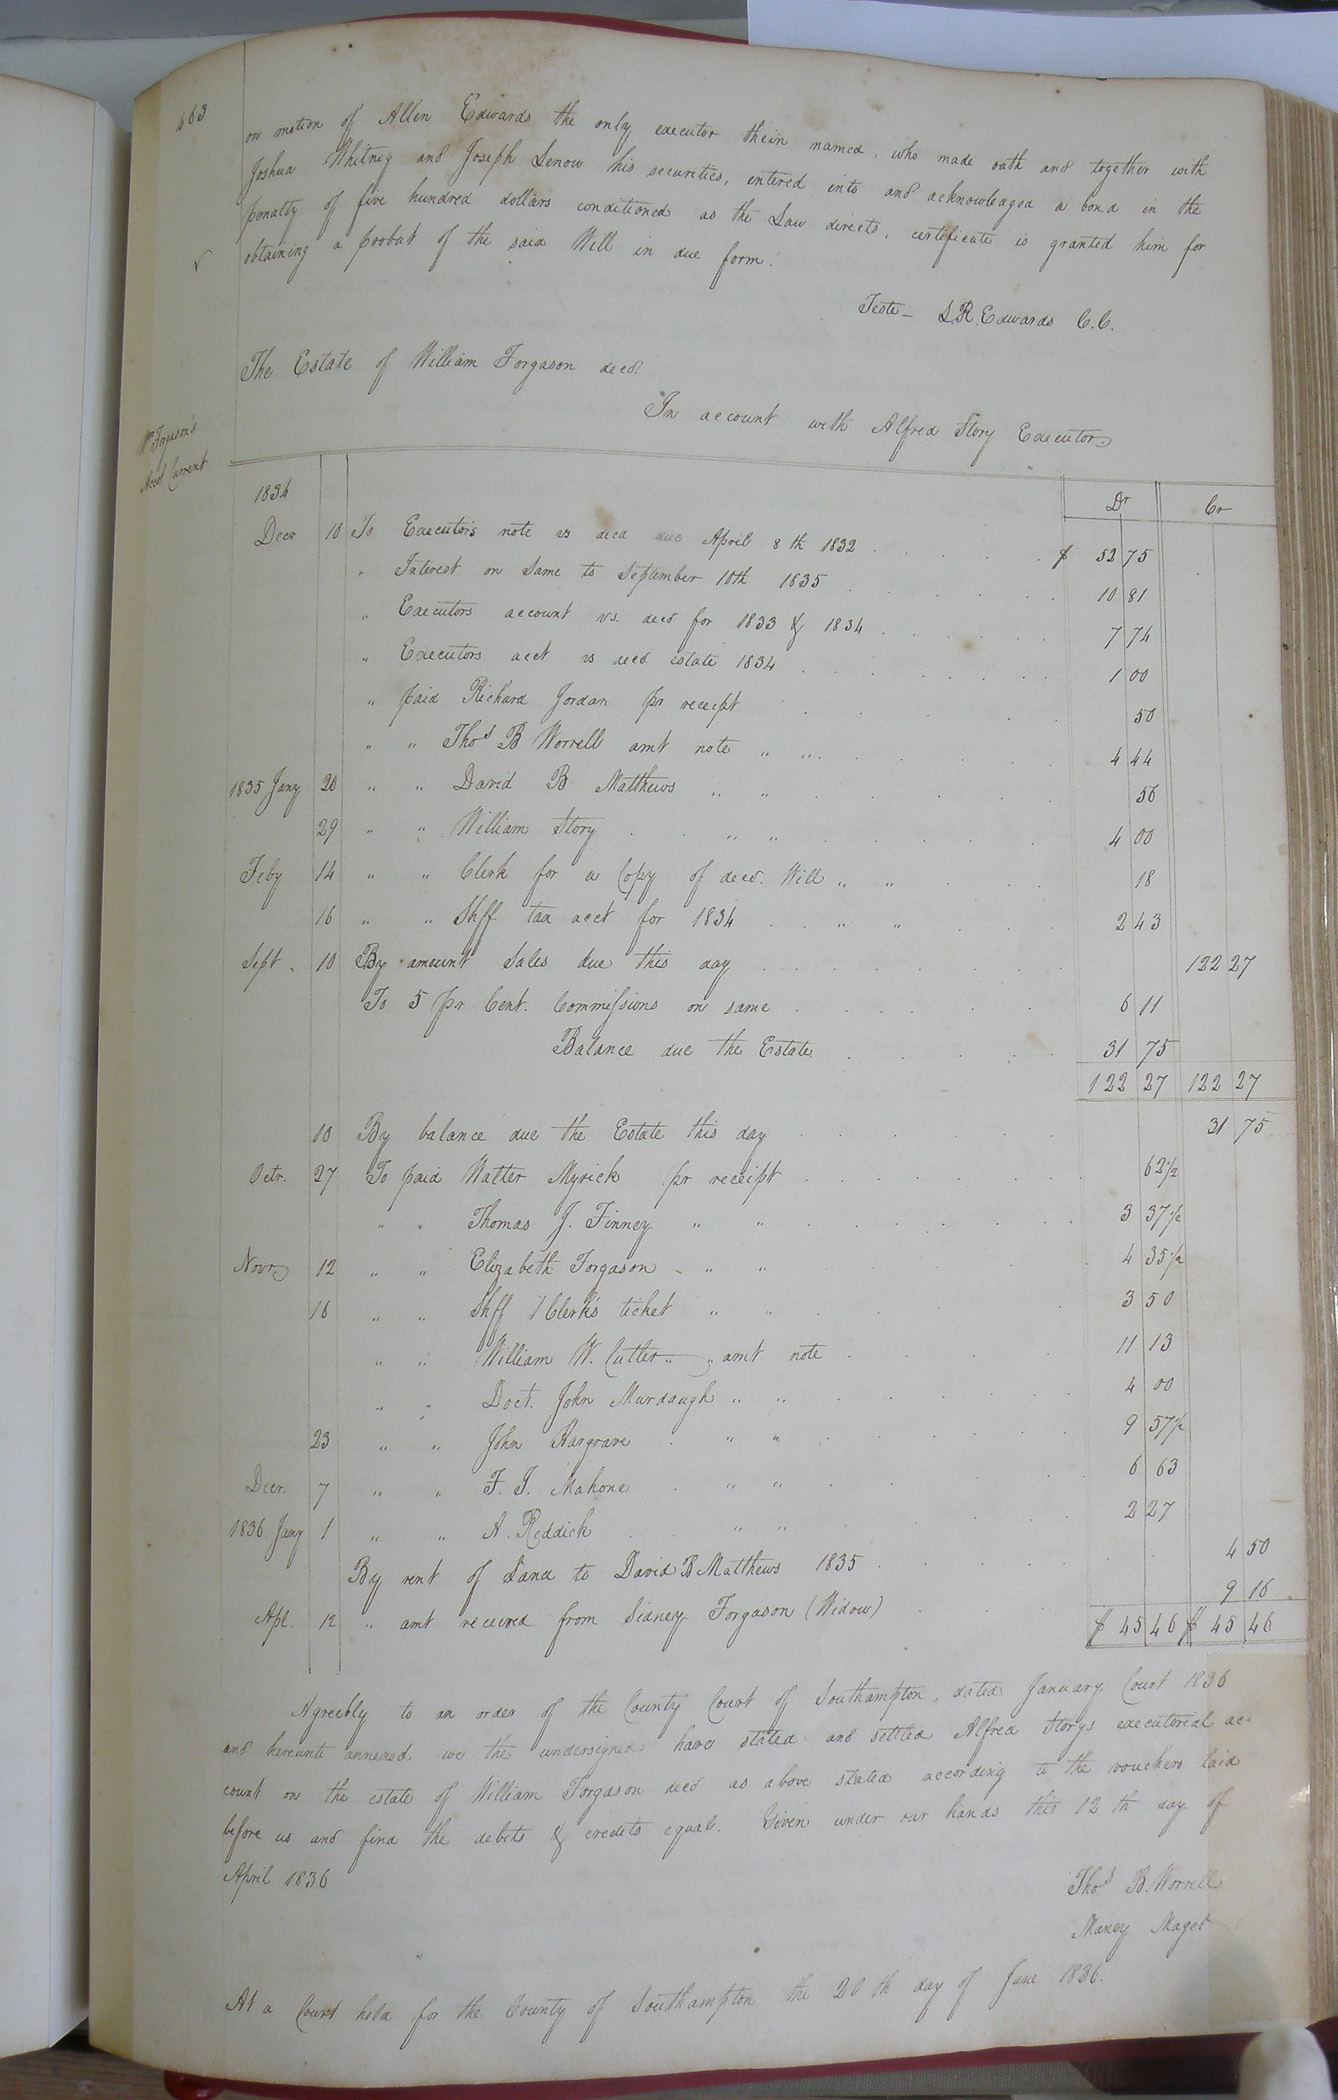 463
on motion of Allen Edwards the only executor thein named, who made oath and together with
Joshua Whitney and Joseph Lenow his securities, entered into and acknowledged a bond in the
penalty of five hundred dollars conditioned as the Law directs, certificate is granted him for
obtaining a probat of the said Will in due form.
Teste_ L.R. Edwards C.C.
The Estate of William Forgason decd.
In account with Alfred Story Executor
Wm Forgason's
Acct Current
Dr Cr
1834
Decr 10 To Executors note vs decd due April 8th 1832 $ 52 75
" Interest on Same to September 10th 1835 10 81
" Executors account vs. decd for 1833 & 1834 7 74
" Executors acct vs decd. estate 1834 1 00
" paid Richard Jordan pr receipt 50
" " Thos B Worrell amt note " " 4 44
1835 Jany 20 " " David B Matthews " " 56
29 " " William Story " " 4 00
Feby 14 " " Clerk for a Copy of decd. Will " " 18
16 " " Shff tax acct for 1834 " " 2 43
Sept 10 By amount Sales due this day 122 27
To 5 pr Cent. Commissions on same 6 11
Balance due the Estate 31 75
122 27 122 27
10 By balance due the Estate this day 31 75
Octr. 27 To paid Walter Myrick pr receipt 62½
" " Thomas J. Finney " " 3 37½
Novr. 12 " " Elizabeth Forgason " " 4 35½
16 " " Shff / Clerk's ticket " " 3 50
" " William W. Cutler " " amt note 11 13
" " Doct. John Murdaugh " " 4 00
23 " " John Hargrave " " 9 57½
Decr. 7 " " F. J. Mahone " " 6 63
1836 Jany 1 " " A. Reddick " " 2 27
By rent of Land to David B Matthews 1835 4 50
Apl. 12 " amt received from Sidney Forgason (Widow) 9 16
$ 45 46 $ 45 46
Agreebly to an order of the County Court of Southampton, dated January Court 1836
and hereunto annexed we the undersigned have stated and settled Alfred Storys executorial ac-
count on the estate of William Forgason decd as above stated according to the vouchers laid
before us and find the debits & credits equal. Given under our hands this 12th day of
April 1836
Thos B. Worrell
Maney Maget
At a Court held for the County of Southampton the 20th day of June 1836.